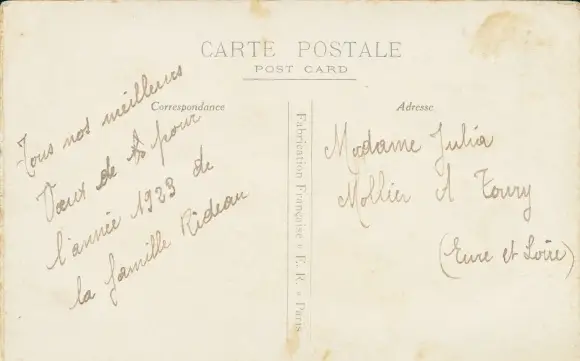 CARTE POSTALE
POST CARD
Correspondance
Tous nos meilleurs
Vœux de pour
l'année 1923 de
la famille Rideau
Fabrication Française - E. R. - Paris
Adresse
Madame Julia
Mollier A Toury
(Eure et Loire)